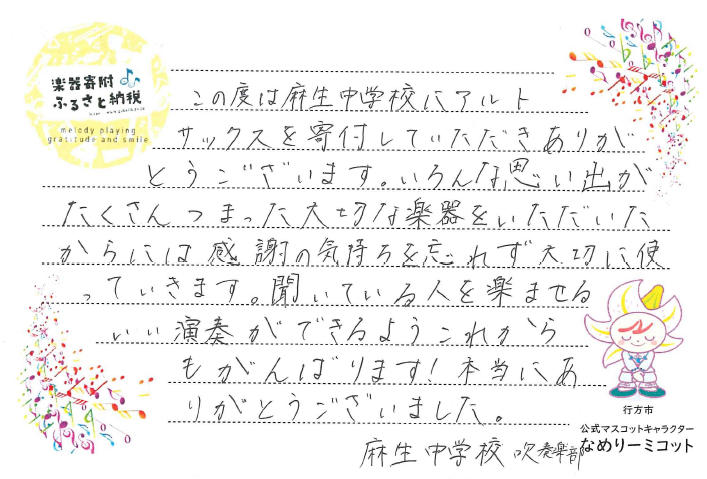 楽器寄附
ふるさと納税
melody playing
gratitude and smile
この度は麻生中学校にアルト
サックスを寄付していただきありが
とうございます。いろんな思い出が
たくさんつまった大切な楽器をいただいた
からには感謝の気持ちを忘れず大切に使
っていきます。聞いている人を楽ませる
いい演奏ができるようこれから
もがんばります!本当にあ
りがとうございました。
麻生中学校吹奏楽部
行方市
公式マスコットキャラクター
なめりーミコット